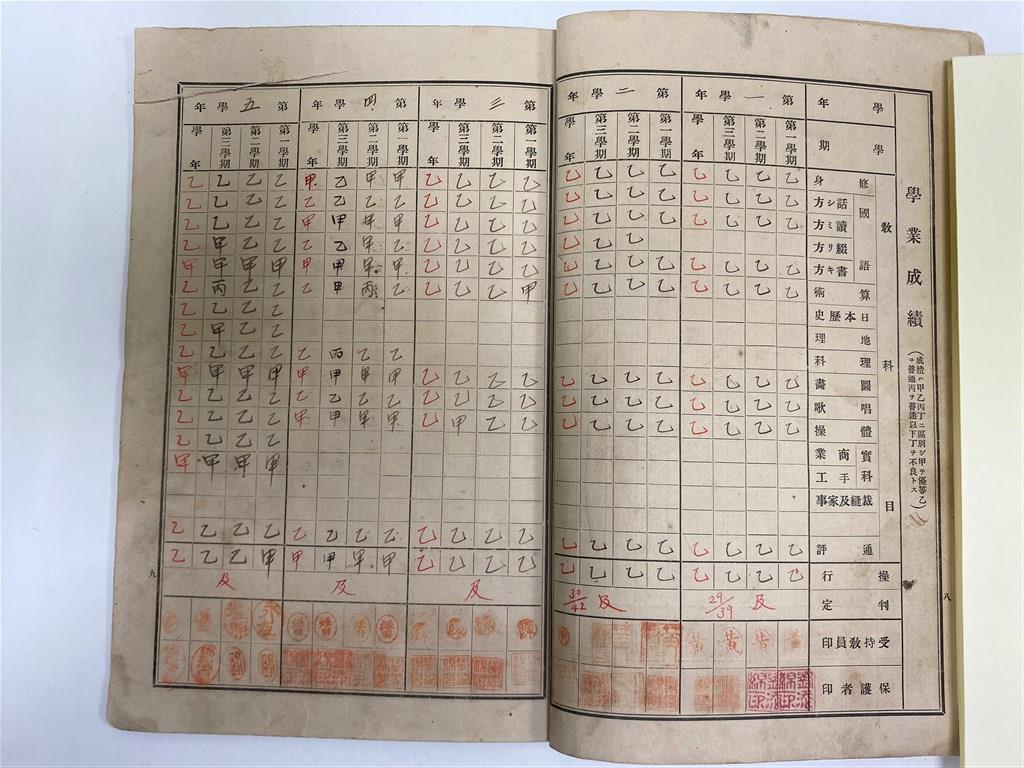 學業成績
(成績ハ甲乙丙丁ニ區別シ甲ヲ優等乙
ヲ普通丙ヲ普通以下丁ヲ不良トス)
學年 第一學年 第二學年 第三學年 第四學年 第五學年
學期 第一學期 第二學期 第三學期 學年 第一學期 第二學期 第三學期 學年 第一學期 第二學期 第三學期 學年 第一學期 第二學期 第三學期 學年 第一學期 第二學期 第三學期 學年
教科目
修身 乙 乙 乙 乙 乙 乙 乙 乙 乙 乙 乙 乙 甲 甲 乙 甲 乙 乙 乙 乙
國語
話シ方 乙 乙 乙 乙 乙 乙 乙 乙 乙 乙 乙 乙 乙 乙 乙 乙 乙 乙 乙 乙
讀ミ方 乙 乙 乙 乙 乙 乙 乙 乙 乙 乙 乙 乙 甲 甲 甲 甲 乙 乙 乙 乙
綴リ方 乙 乙 乙 乙 乙 乙 乙 乙 甲 乙 乙 乙 乙 甲 乙
書キ方 乙 乙 乙 乙 乙 乙 乙 乙 乙 乙 乙 乙 甲 甲 甲 甲 甲 甲 甲 甲
算術 乙 乙 乙 乙 乙 乙 乙 乙 甲 乙 乙 乙 乙 丙 甲 乙 乙 乙 丙 乙
日本歷史 乙 乙 乙 乙
地理 乙 乙 甲 乙
理科 乙 乙 丙 乙 乙 乙 乙 乙
圖畫 乙 乙 乙 乙 乙 乙 乙 乙 乙 乙 乙 乙 甲 甲 甲 甲 甲 甲 甲 甲
唱歌 乙 乙 乙 乙 乙 乙 乙 乙 乙 乙 乙 乙 乙 乙 乙 乙 乙 乙 乙 乙
體操 乙 乙 乙 乙 乙 乙 乙 乙 乙 乙 甲 乙 甲 甲 甲 甲 乙 乙 乙 乙
實科
商業 乙 乙 乙 乙
手工 甲 甲 甲 甲
裁縫及家事
通評 乙 乙 乙 乙 乙 乙 乙 乙 乙 乙 乙 乙 乙 乙 乙 乙 乙 乙 乙 乙
操行 乙 乙 乙 乙 乙 乙 乙 乙 乙 乙 乙 乙 甲 甲 甲 甲 甲 乙 乙 乙
判定 29/39 及 30/42 及 及 及 及
受持教員印 黃 黃 黃 黃
保護者印
八
九